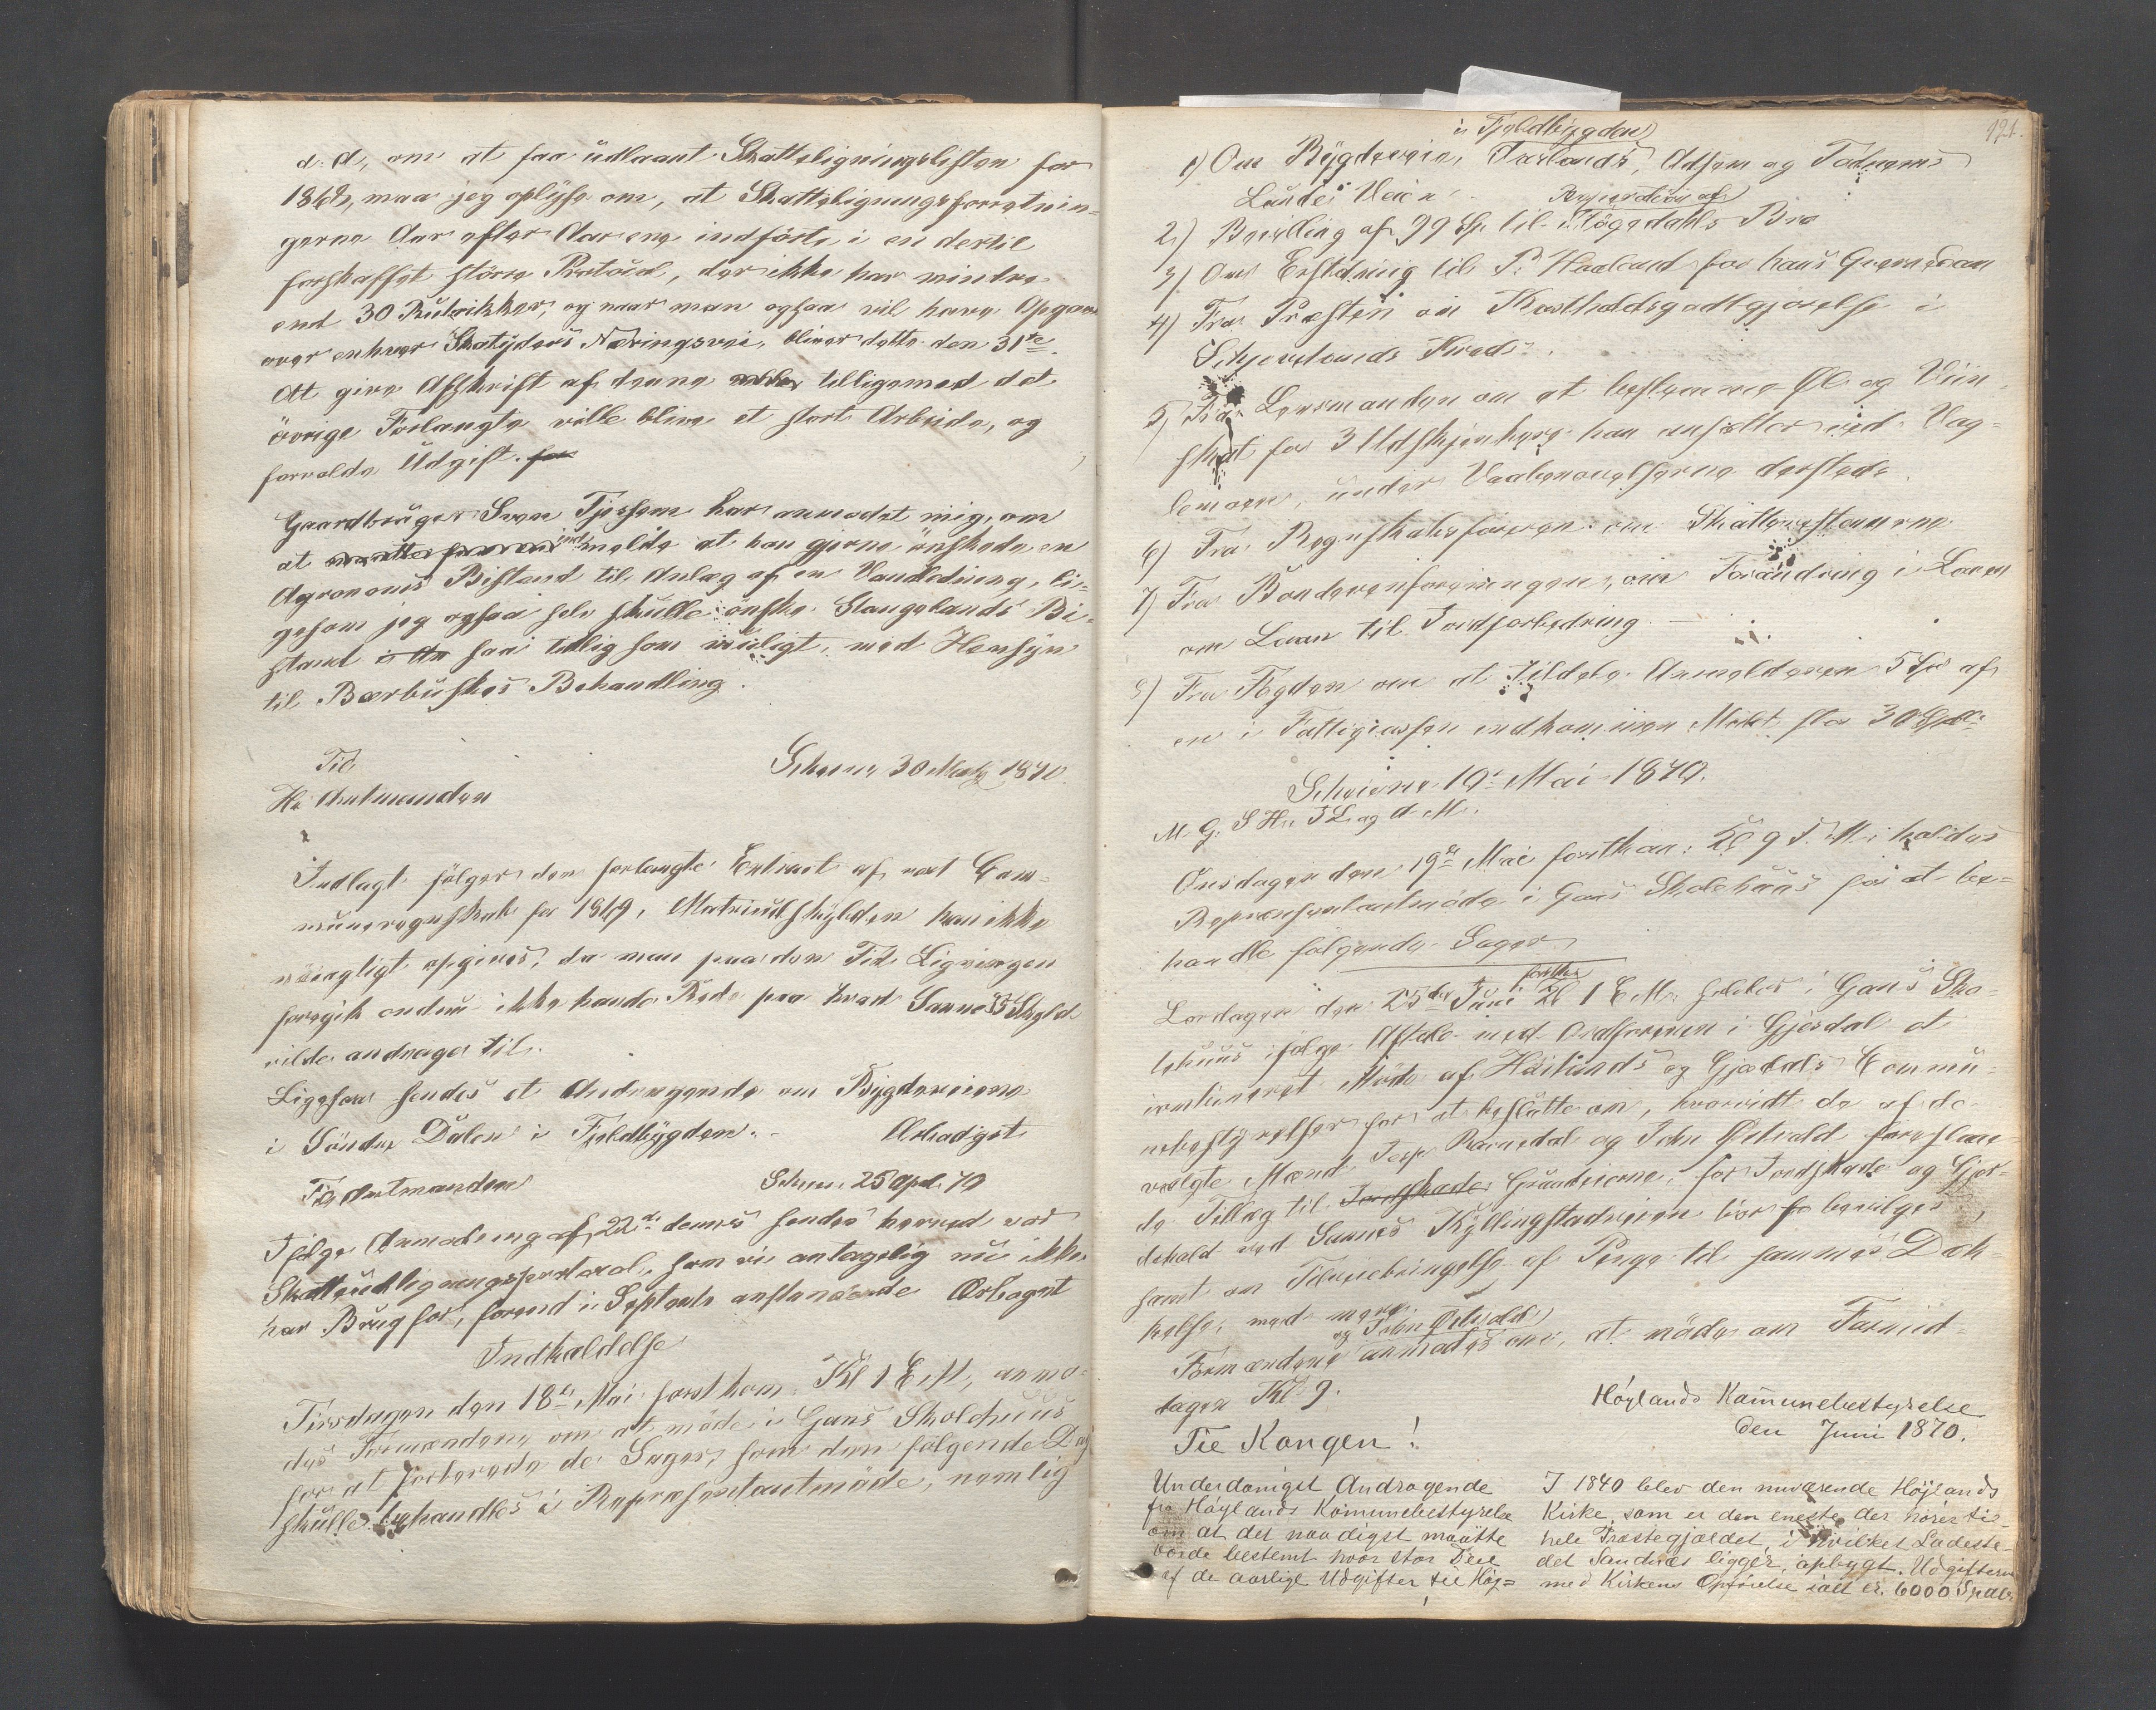 d. d., om at faa udlaant Skatteligningslisten for
1868, maa jeg oplyse om, at Skatteligningsforretnin-
gerne Aar efter Aar ere indførte i en dertil
forskaffet større Protocol, der ikke har mindre
end 30 Rubrikker, og naar man ogsaa vil have Opgave
over enhver Skatyders Næringsvei, bliver dette den 31te.
Att give Afskrift af denne tilligemed det
øvrige Forlangte ville blive et stort Arbeide, og
forvolde Udgift. for
Gaardbruger Sven Tjessem har anmodet mig, om
at indmelde at han gjerne ønskede en
Agronoms Bistand til Anlæg af en Vandledning, li-
gesom jeg ogsaa selv skulle ønske Stangelands Bi-
stand saa tidlig som muligt, med Hensyn
til Bærbuskes Behandling.
Til
Hr Amtmanden
30 Marts 1870.
Indlagt følger den forlangte Extract af vort Com-
muneregnskab for 1869, Matriculskylden kan ikke
nøiagtigt opgives, da man paa den Tid Ligningen
foregik endnu ikke havde Rede paa hvad Skyld
vilde andrage til.
Ligesom sendes et Andragende om Bygdeveiene
i Søndre Dalen i Fjeldbygden. Ærbødigst
Til Amtmanden
25 April 70
Ifølge Anmodning af 22de dennes sendes herved vor
Skatteudligningsprotocol, som vi antagelig nu ikke
har Brug for, forend i Septemb anstundende Ærbøgst
Indkaldelse
Tirsdagen den 18de Mai førsthom. Kl 1 E M, anmo-
des Formændene om at møde i Gans Skolehuus
for at forberede de Sager, som den følgende Dag
skulle behandles i Repræsentantmøde, nemlig
121.
i Fjeldbygden
1) Om Bygdeveie, Adsem og
Lunde Veien
Reparation af
2) Bevilling af 99 Sp. til Bro
3) Om Erstatning til P. Haaland for hans
4) Fra Præsten om Kostholdsgodtgjørelse i
Kreds.
5) Fra Lensmanden om at bestemme Øl og Viin-
skat for 3 Udskjenkere han ansætter ved Vag-
lemoen, under Vaabenøvelserne dersteds.
6) Fra Regnskabsføreren om Skatterestancerne
7) Fra Bondevenforeningen, om Forandring i Loven
om Laan til Jordforbedring.
8) Fra Fogden om at tildele Anmelderen 5 Sp af
en i Fattigcassen indkommen Mulct stor 30 Spd.
10de Mai 1870.
M. G. S H. T L og d. M.
Onsdagen den 19de Mai forsthom. Kl 9 F. M. holdes
Repræsentantmøde i Gans Skolehuus for at be-
handle følgende Sager.
førsthk
Lørdagen den 25de Juni Kl 1 E M. holdes i Gans Sko-
lehuus ifølge Aftale med Ordføreren i Gjesdal et
combineret Møde af Høilands og Gjesdals Commu-
nebestyrelser for at beslutte om, hvorvidt de af de
valgte Mænd Jesp Ravnedal og John Østvold foreslaae-
de Tillæg til Jordskade Grundeierne, for Jordskade og Gjer-
dehold ved Sannes Kyllingstadveien bør bevilges,
samt om Tilveiebringelse af Penge til sammes Dæk-
kelse, med mere.
og John Østvold
Formændene anmodes om, at møde om Formid-
dagen Kl 9.
Høylands Kommunebestyrelse
den Juni 1870.
Til Kongen!
Underdanigst Andragende
fra Høylands Kommunebestyrelse
om at det naadigst maatte
vorde bestemt hvor stor Deel
af de aarlige Udgifter til Høy=
I 1840 blev den nuværende Højlands
Kirke, som er den eneste der hører til
hele Præstegjældet, i hvilket Ladeste-
det Sandnæs ligger, opbygt. Udgifterne
med Kirkens Opførelse ialt er. 6000 Spdlr.